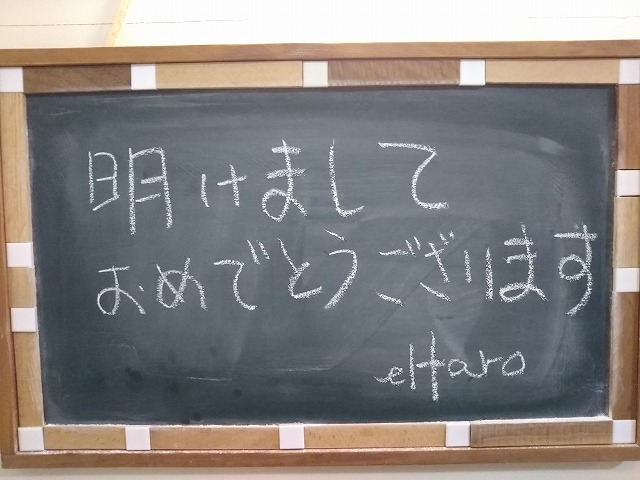 明けまして
おめでとうございます
eltaro